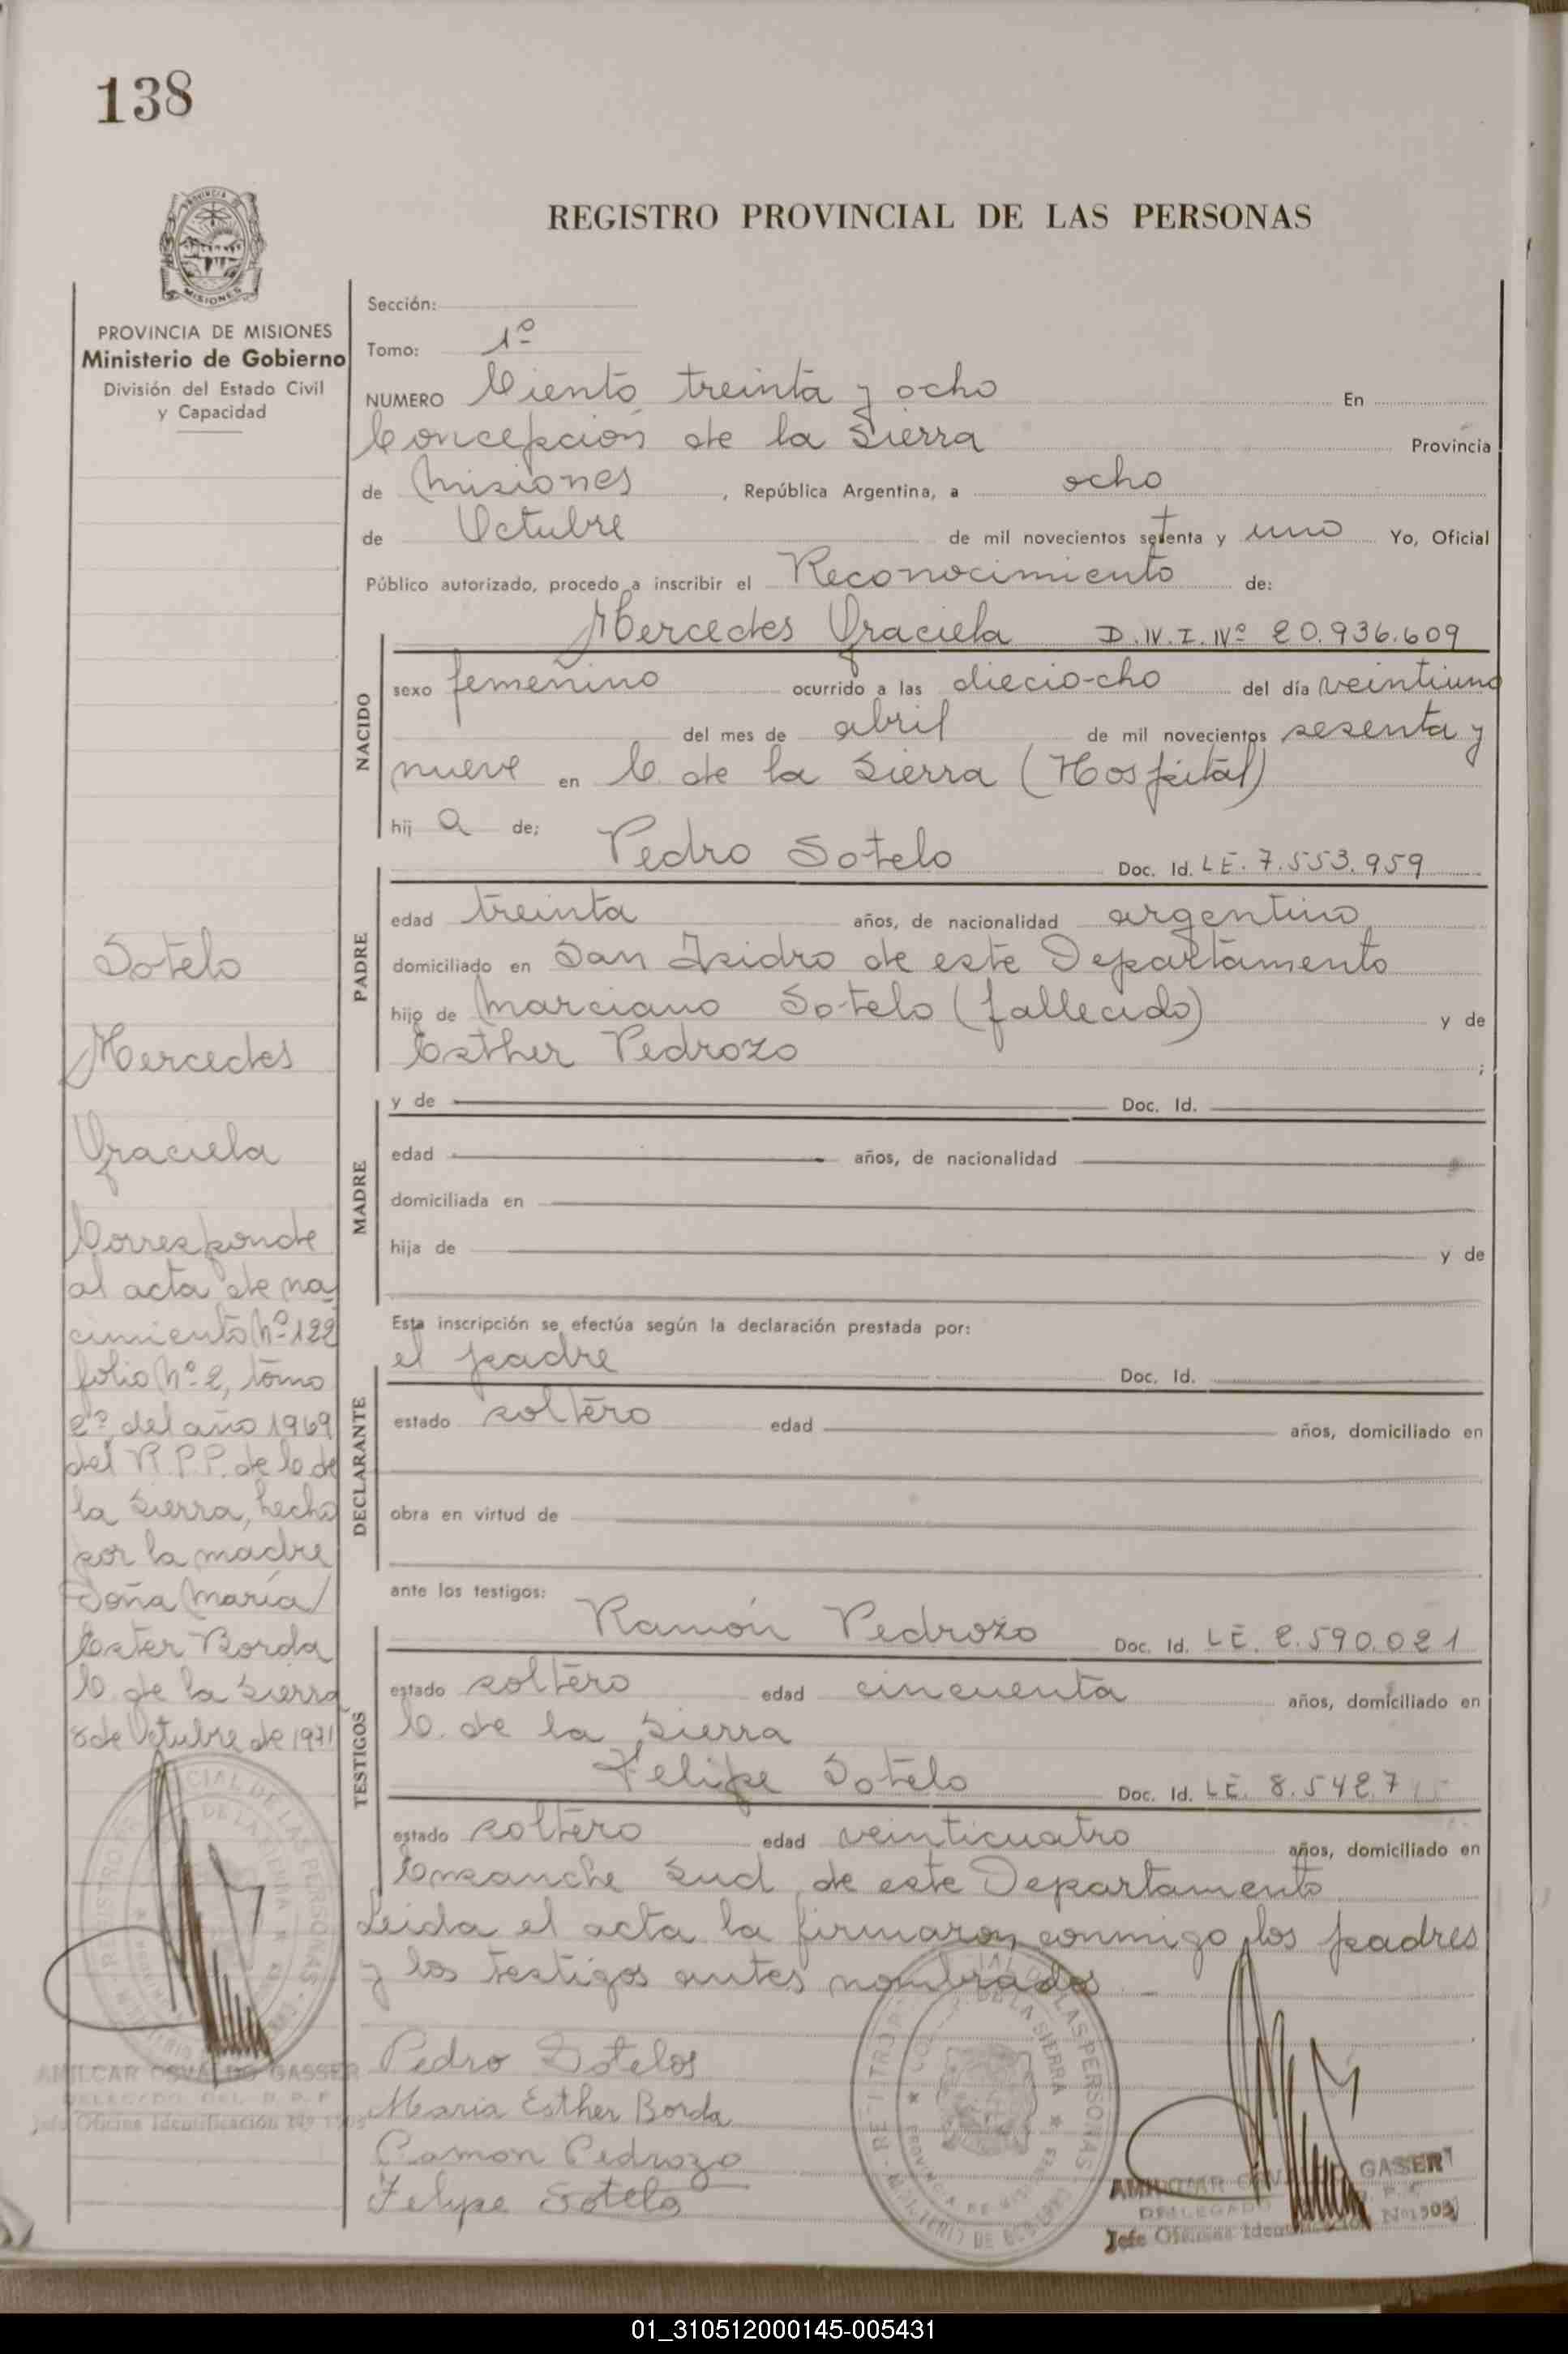 138
REGISTRO PROVINCIAL DE LAS PERSONAS
MISIONES
PROVINCIA DE MISIONES
Ministerio de Gobierno
División del Estado Civil
y Capacidad
Sección:
Tomo: 1º
NUMERO Ciento treinta y ocho En
Concepción de la Sierra Provincia
de Misiones, República Argentina, a ocho
de Octubre de mil novecientos setenta y uno Yo, Oficial
Público autorizado, procedo a inscribir el Reconocimiento de:
Mercedes Graciela D.N.I. Nº 20.936.609
NACIDO
sexo femenino ocurrido a las dieciocho del día veintiuno
del mes de abril de mil novecientos sesenta y
nueve en C. de la Sierra (Hospital)
hij a de;
Pedro Sotelo Doc. Id. LE. 7.553.959
PADRE
edad treinta años, de nacionalidad argentino
domiciliado en San Isidro de este Departamento
hijo de Marciano Sotelo (fallecido) y de
Esther Pedrozo ;
MADRE
y de Doc. Id.
edad años, de nacionalidad
domiciliada en
hija de y de
Esta inscripción se efectúa según la declaración prestada por:
el padre Doc. Id.
DECLARANTE
estado soltero edad años, domiciliado en
obra en virtud de
ante los testigos:
Ramón Pedrozo Doc. Id. LE. 2.590.021
TESTIGOS
estado soltero edad cincuenta años, domiciliado en
C. de la Sierra
Felipe Sotelo Doc. Id. LE. 8.542.7
estado soltero edad veinticuatro años, domiciliado en
Ensanche Sud de este Departamento
Leida el acta la firmaron conmigo los padres
y los testigos antes nombrados. –
Pedro Sotelos
Maria Esther Borda
Ramon Pedrozo
Felipe Sotelo
Sotelo
Mercedes
Graciela
Corresponde
al acta de na
cimiento Nº 122
folio Nº 2, tomo
2º del año 1969
del R.P.P. de C. de
la Sierra, hecho
por la madre
Doña María
Ester Borda
C. de la Sierra
8 de Octubre de 1971
AMILCAR OSVALDO GASSER
DELEGADO DEL R.P.P.
Jefe Oficina Identificación Nº 1505
REGISTRO PROVINCIAL DE LAS PERSONAS - MINISTERIO DE GOBIERNO
DE LA SIERRA
PROVINCIA DE MISIONES
AMILCAR OSVALDO GASSER
DELEGADO
Jefe Oficina Identificación Nº 1505
01_310512000145-005431